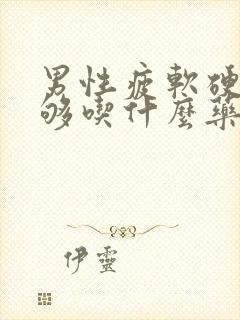 男性疲軟硬
够喫什麼藥
伊靈